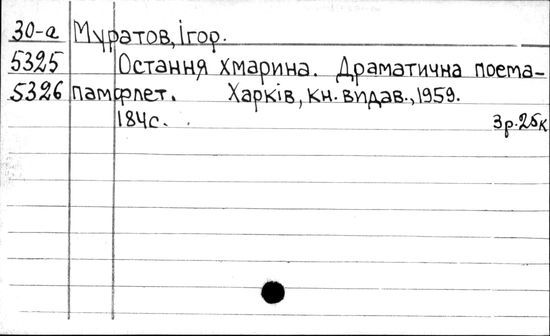 30-а Муратов, Ігор.
5325 Остання хмарина. Драматична поема-
5326 памфлет. Харків, кн. видав., 1959.
184с. 3р.25к